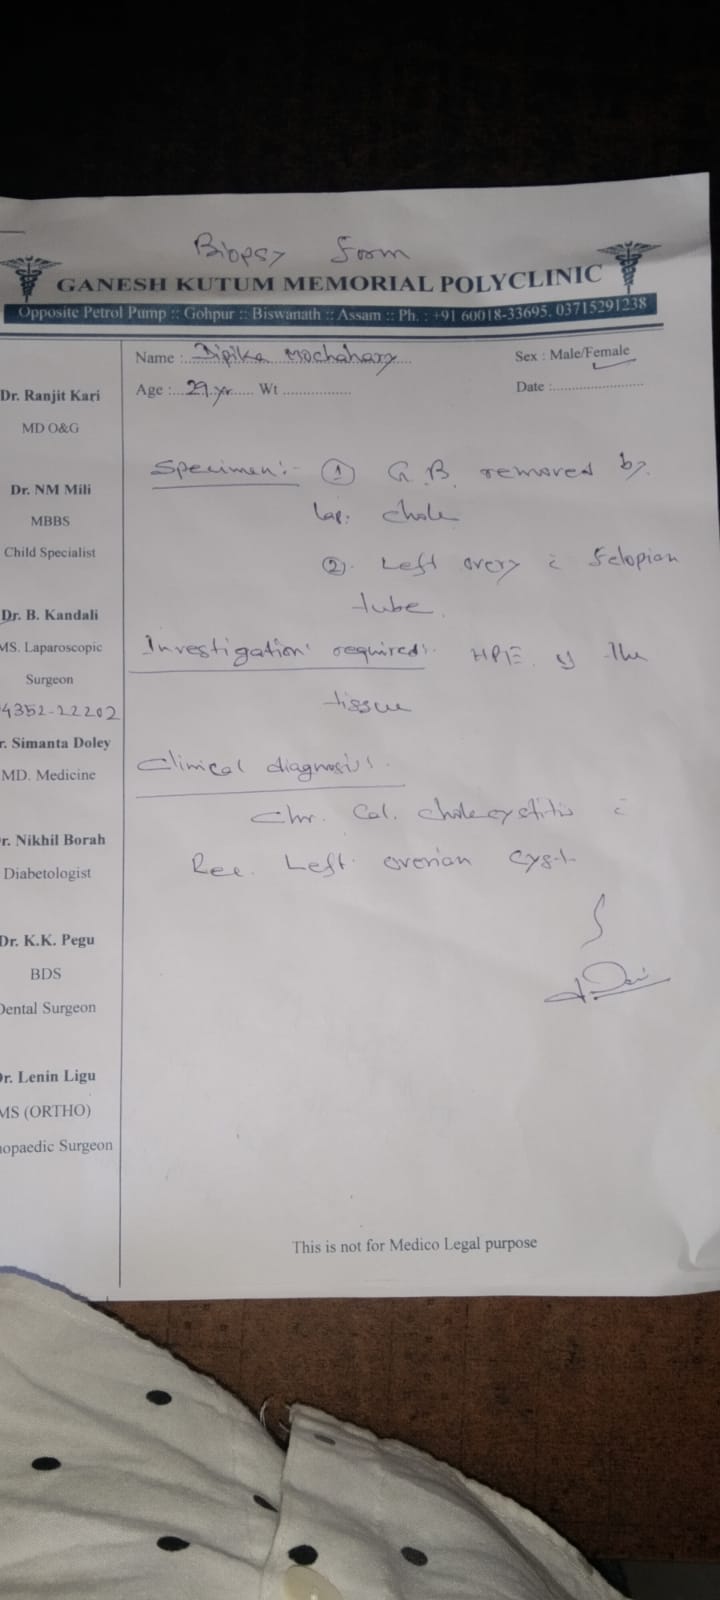 Biopsy form
GANESH KUTUM MEMORIAL POLYCLINIC
Opposite Petrol Pump :: Gohpur :: Biswanath :: Assam :: Ph. : +91 60018-33695, 03715291238
Name : Dipika Mochahary
Sex : Male/Female
Age : 29 yr Wt
Date :
Dr. Ranjit Kari
MD O&G
Dr. NM Mili
MBBS
Child Specialist
Dr. B. Kandali
MS. Laparoscopic
Surgeon
94352-22202
r. Simanta Doley
MD. Medicine
r. Nikhil Borah
Diabetologist
Dr. K.K. Pegu
BDS
Dental Surgeon
Dr. Lenin Ligu
MS (ORTHO)
opaedic Surgeon
Specimen:- ① G.B. removed by
lap. chole
②. Left overy c̄ felopian
tube.
Investigation required:- HPE of the
tissue
Clinical diagnosis:-
Chr. Cal. cholecystitis c̄
Rec. Left ovarian cyst
This is not for Medico Legal purpose